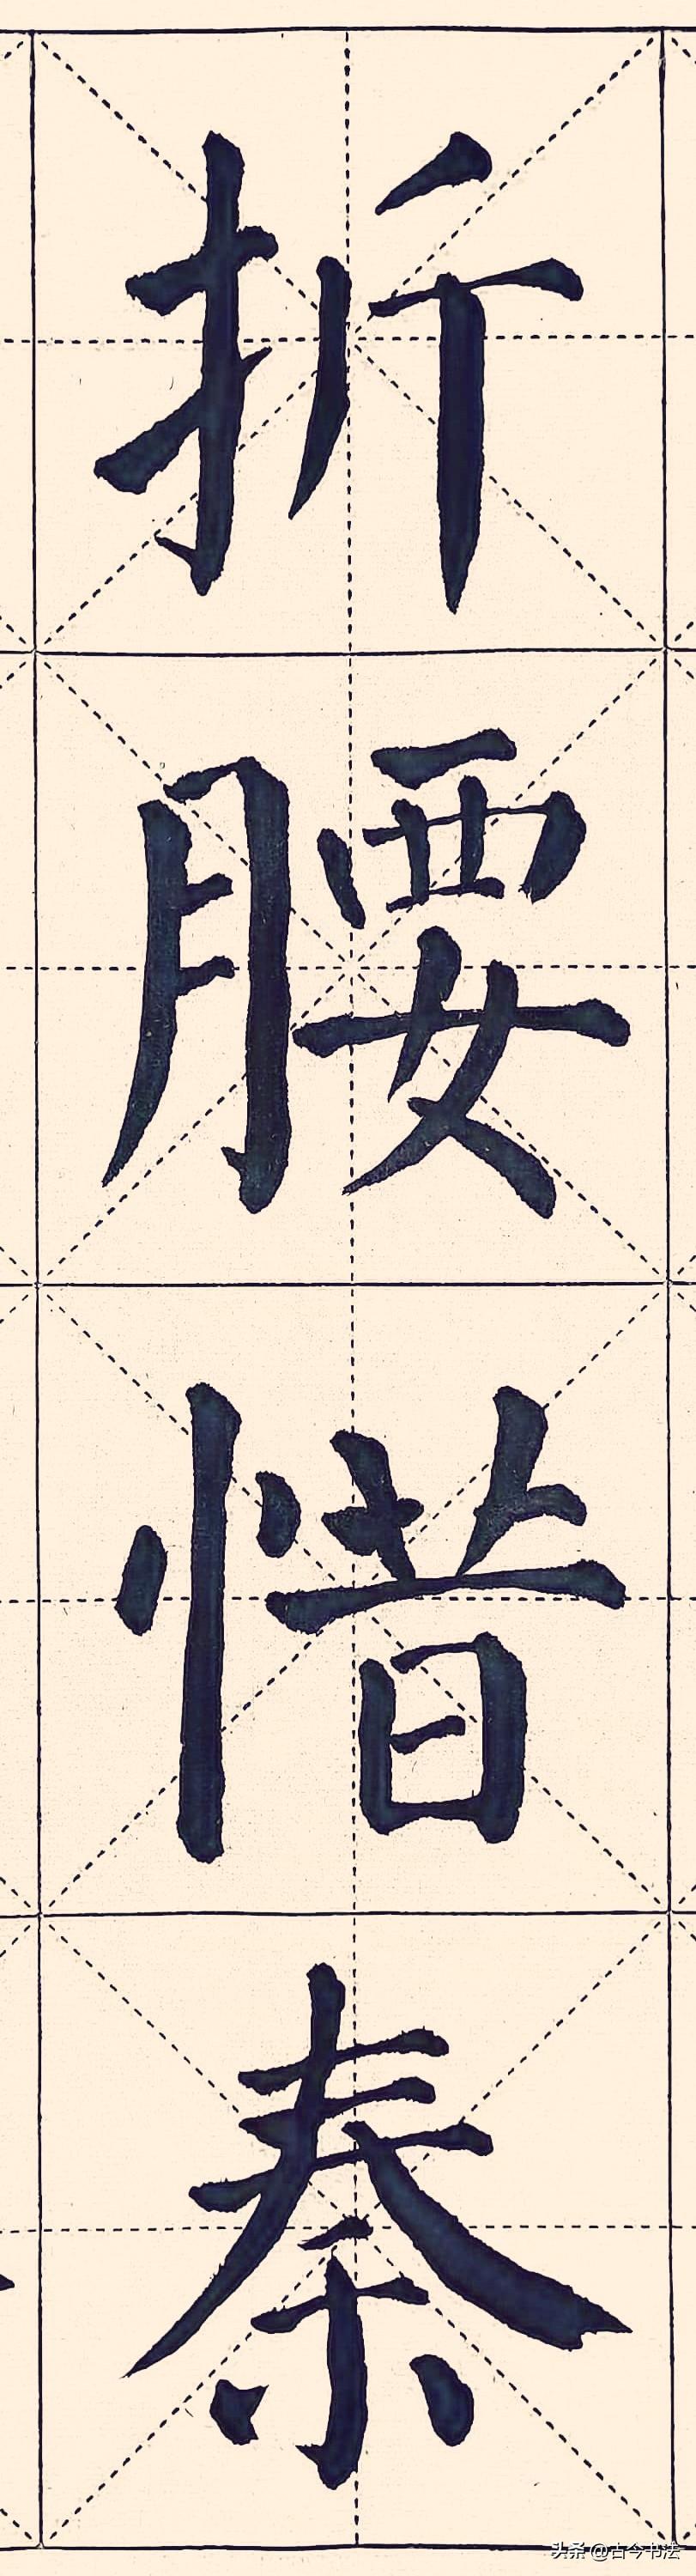 折腰惜秦
头条 @古今书法